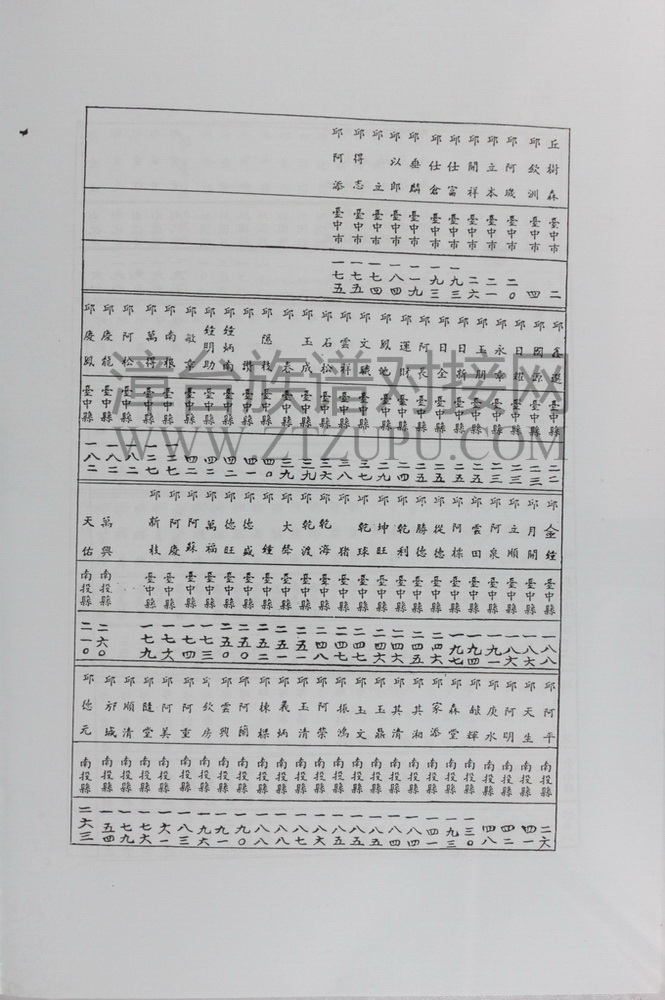 丘樹森 臺中市 二
邱欽洲 臺中市 四
邱阿成 臺中市 二〇
邱立本 臺中市 二一
邱開祥 臺中市 二六
邱仕富 臺中市 一九三
邱仕倉 臺中市 一九三
邱垂麟 臺中市 一一九
邱以郎 臺中市 一八四
邱立 臺中市 一七四
邱得志 臺中市 一七五
邱阿添 臺中市 一七五
邱鑫 臺中縣 二二
邱國源 臺中縣 二三
邱日 臺中縣 二三
邱永 臺中縣 二三
邱玉朝 臺中縣 二五
邱日新 臺中縣 二五
邱日全 臺中縣 二五
邱阿長 臺中縣 二五
邱運財 臺中縣 二四
邱鳳池 臺中縣 二四
邱文 臺中縣 三七
邱雲祥 臺中縣 三八
邱石松 臺中縣 三六
邱玉成 臺中縣 三九
邱春 臺中縣 三九
邱 臺中縣 四〇
邱 臺中縣 四一
邱 臺中縣 四二
邱明助 臺中縣 四二
邱 臺中縣 四二
邱南根 臺中縣 一七
邱萬得 臺中縣 二七
邱阿松 臺中縣 八二
邱慶龍 臺中縣 八二
邱慶鳳 臺中縣 一八二
邱金鐘 臺中縣 一八八
邱月開 臺中縣 一八六
邱立順 臺中縣 一八六
邱阿泉 臺中縣 一九一
邱雲田 臺中縣 一九四
邱阿樑 臺中縣 一九七
邱從德 臺中縣 二四六
邱勝德 臺中縣 二四五
邱乾利 臺中縣 二四六
邱坤旺 臺中縣 二四六
邱乾球 臺中縣 二四七
邱猪 臺中縣 二四七
邱乾海 臺中縣 二四八
邱乾波 臺中縣 二五一
邱大榮 臺中縣 二五一
邱鐘 臺中縣 二五二
邱德盛 臺中縣 二五〇
邱德旺 臺中縣 二五〇
邱萬福 臺中縣 一七三
邱阿蘇 臺中縣 一七四
邱阿慶 臺中縣 一七六
邱新枝 臺中縣 一七九
萬興 南投縣 二六〇
天佑 南投縣 二一〇
邱阿平 南投縣 二六
邱天生 南投縣 四一
邱阿明 南投縣 四二
邱庚水 南投縣 四八
邱 南投縣 一三〇
邱森堂 南投縣 一九三
邱家添 南投縣 一四一
邱其湘 南投縣 一八四
邱其清 南投縣 一八四
邱玉鼎 南投縣 一八五
邱玉文 南投縣 一八五
邱振鴻 南投縣 一八五
邱阿榮 南投縣 一八六
邱玉清 南投縣 一八七
邱義炳 南投縣 一八八
邱棟樑 南投縣 一八八
邱阿蘭 南投縣 一九〇
邱雲興 南投縣 一九一
邱欽房 南投縣 一九六
邱阿重 南投縣 一八三
邱阿美 南投縣 一六一
邱隨堂 南投縣 一七六
邱順清 南投縣 一七九
邱 南投縣 一五四
邱德元 南投縣 二六三
漳台族谱对接网
WWW.ZTZUPU.COM